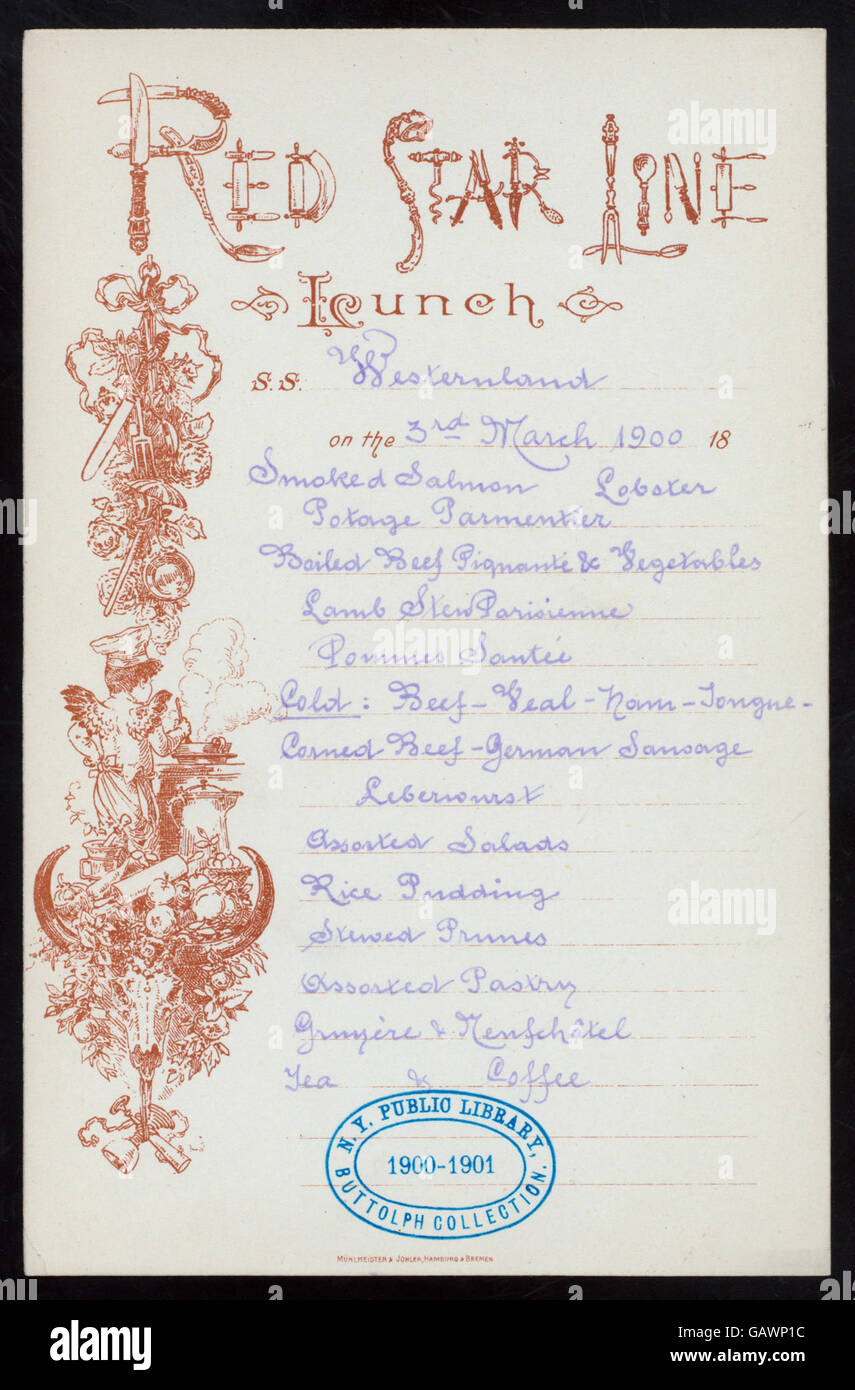 RED STAR LINE
Lunch
S.S. Westernland
on the 3rd March 1900 18
Smoked Salmon Lobster
Potage Parmentier
Boiled Beef Piquante & Vegetables
Lamb Stew Parisienne
Pommes Santée
Cold: Beef - Veal - Ham - Tongue -
Corned Beef - German Sausage
Leberwurst
Assorted Salads
Rice Pudding
Stewed Prunes
Assorted Pastry
Gruyère & Neufchâtel
Tea & Coffee
N.Y. PUBLIC LIBRARY,
1900-1901
BUTTOLPH COLLECTION.
MÜHLMEISTER & JOHLER, HAMBURG & BREMEN
alamy
alamy stock photo
GAWP1C
www.alamy.com